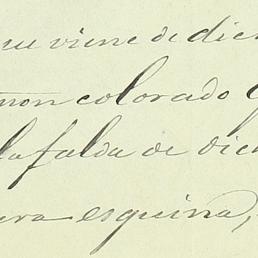 que viene de dich
mon colorado
la falda de dich
era esquina,